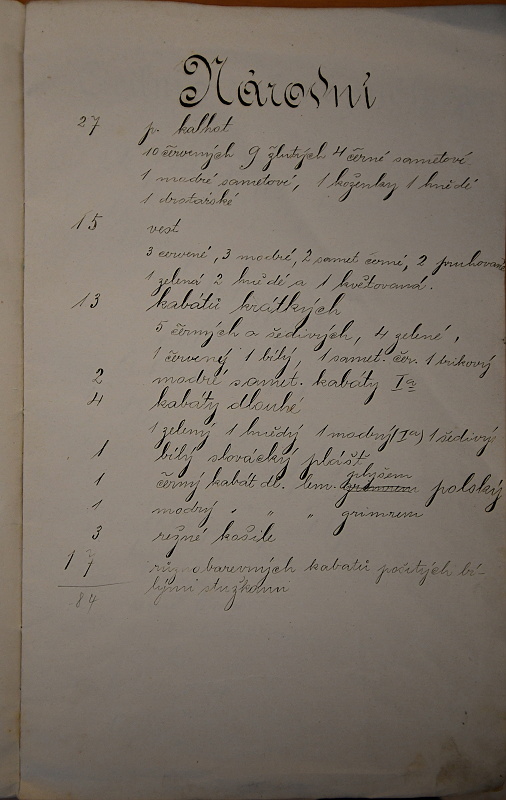 Národní
27 p. kalhot
10 červených 9 žlutých 4 černé sametové
1 modré sametové, 1 koženky 1 hnědé
1 drátařské
15 vest
3 červené, 3 modré, 2 samet černé, 2 pruhované
1 zelená 2 hnědé a 1 květovaná.
13 kabátů krátkých
5 černých a šedivých, 4 zelené,
1 červený 1 bílý, 1 samet. čer. 1 trikový
2 modré samet. kabáty Ia
4 kabáty dlouhé
1 zelený 1 hnědý 1 modrý (Ia) 1 šedivý
1 bílý slovácký plášť
plyšem
1 černý kabát dl. lem. polský
1 modrý " " " grimrem
3 režné košile
17 různobarevných kabátů pošitých bí-
84 lými stužkami